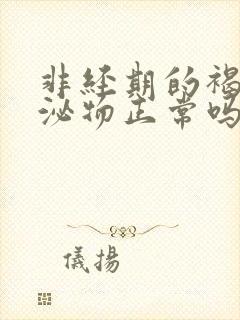 非经期的褐
泌物正常吗
儀揚